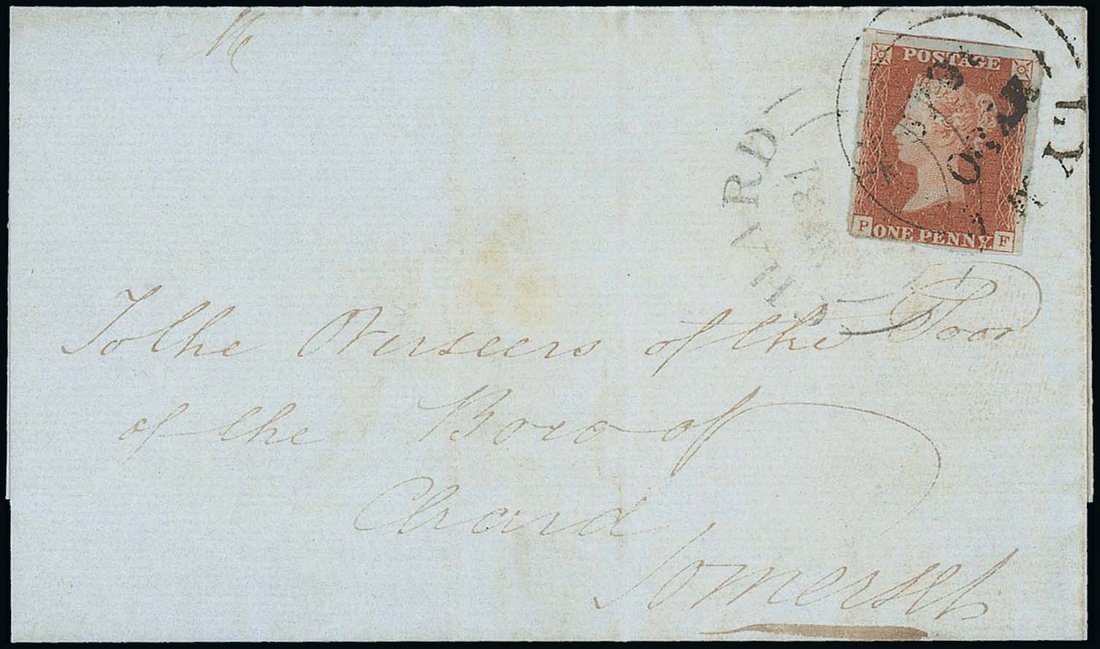 POSTAGE
LY
CHARD
P ONE PENNY F
To the Overseers of the Poor
of the Boro of
Chard,
Somerset